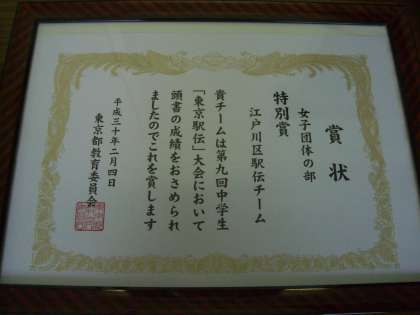 賞状
女子団体の部
特別賞
江戸川区駅伝チーム
貴チームは第九回中学生
「東京駅伝」大会において
頭書の成績をおさめられ
ましたのでこれを賞します
平成三十年二月四日
東京都教育委員会